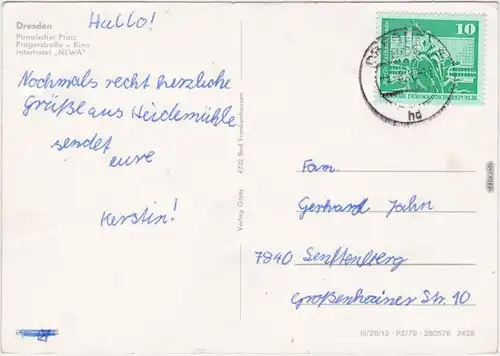 Dresden
Pirnaischer Platz
Pragerstraße – Kino
Interhotel „NEWA"
Hallo!
Nochmals recht herzliche
Grüße aus Heidemühle
sendet
eure
Kerstin!
Verlag Görtz 4732 Bad Frankenhausen
10
DEMOKRATISCHE REPUBLIK
hd
Fam.
Gerhard Jahn
7840 Senftenberg
Großenhainer Str. 10
III/26/13 · PZ/79 · 280576 2428